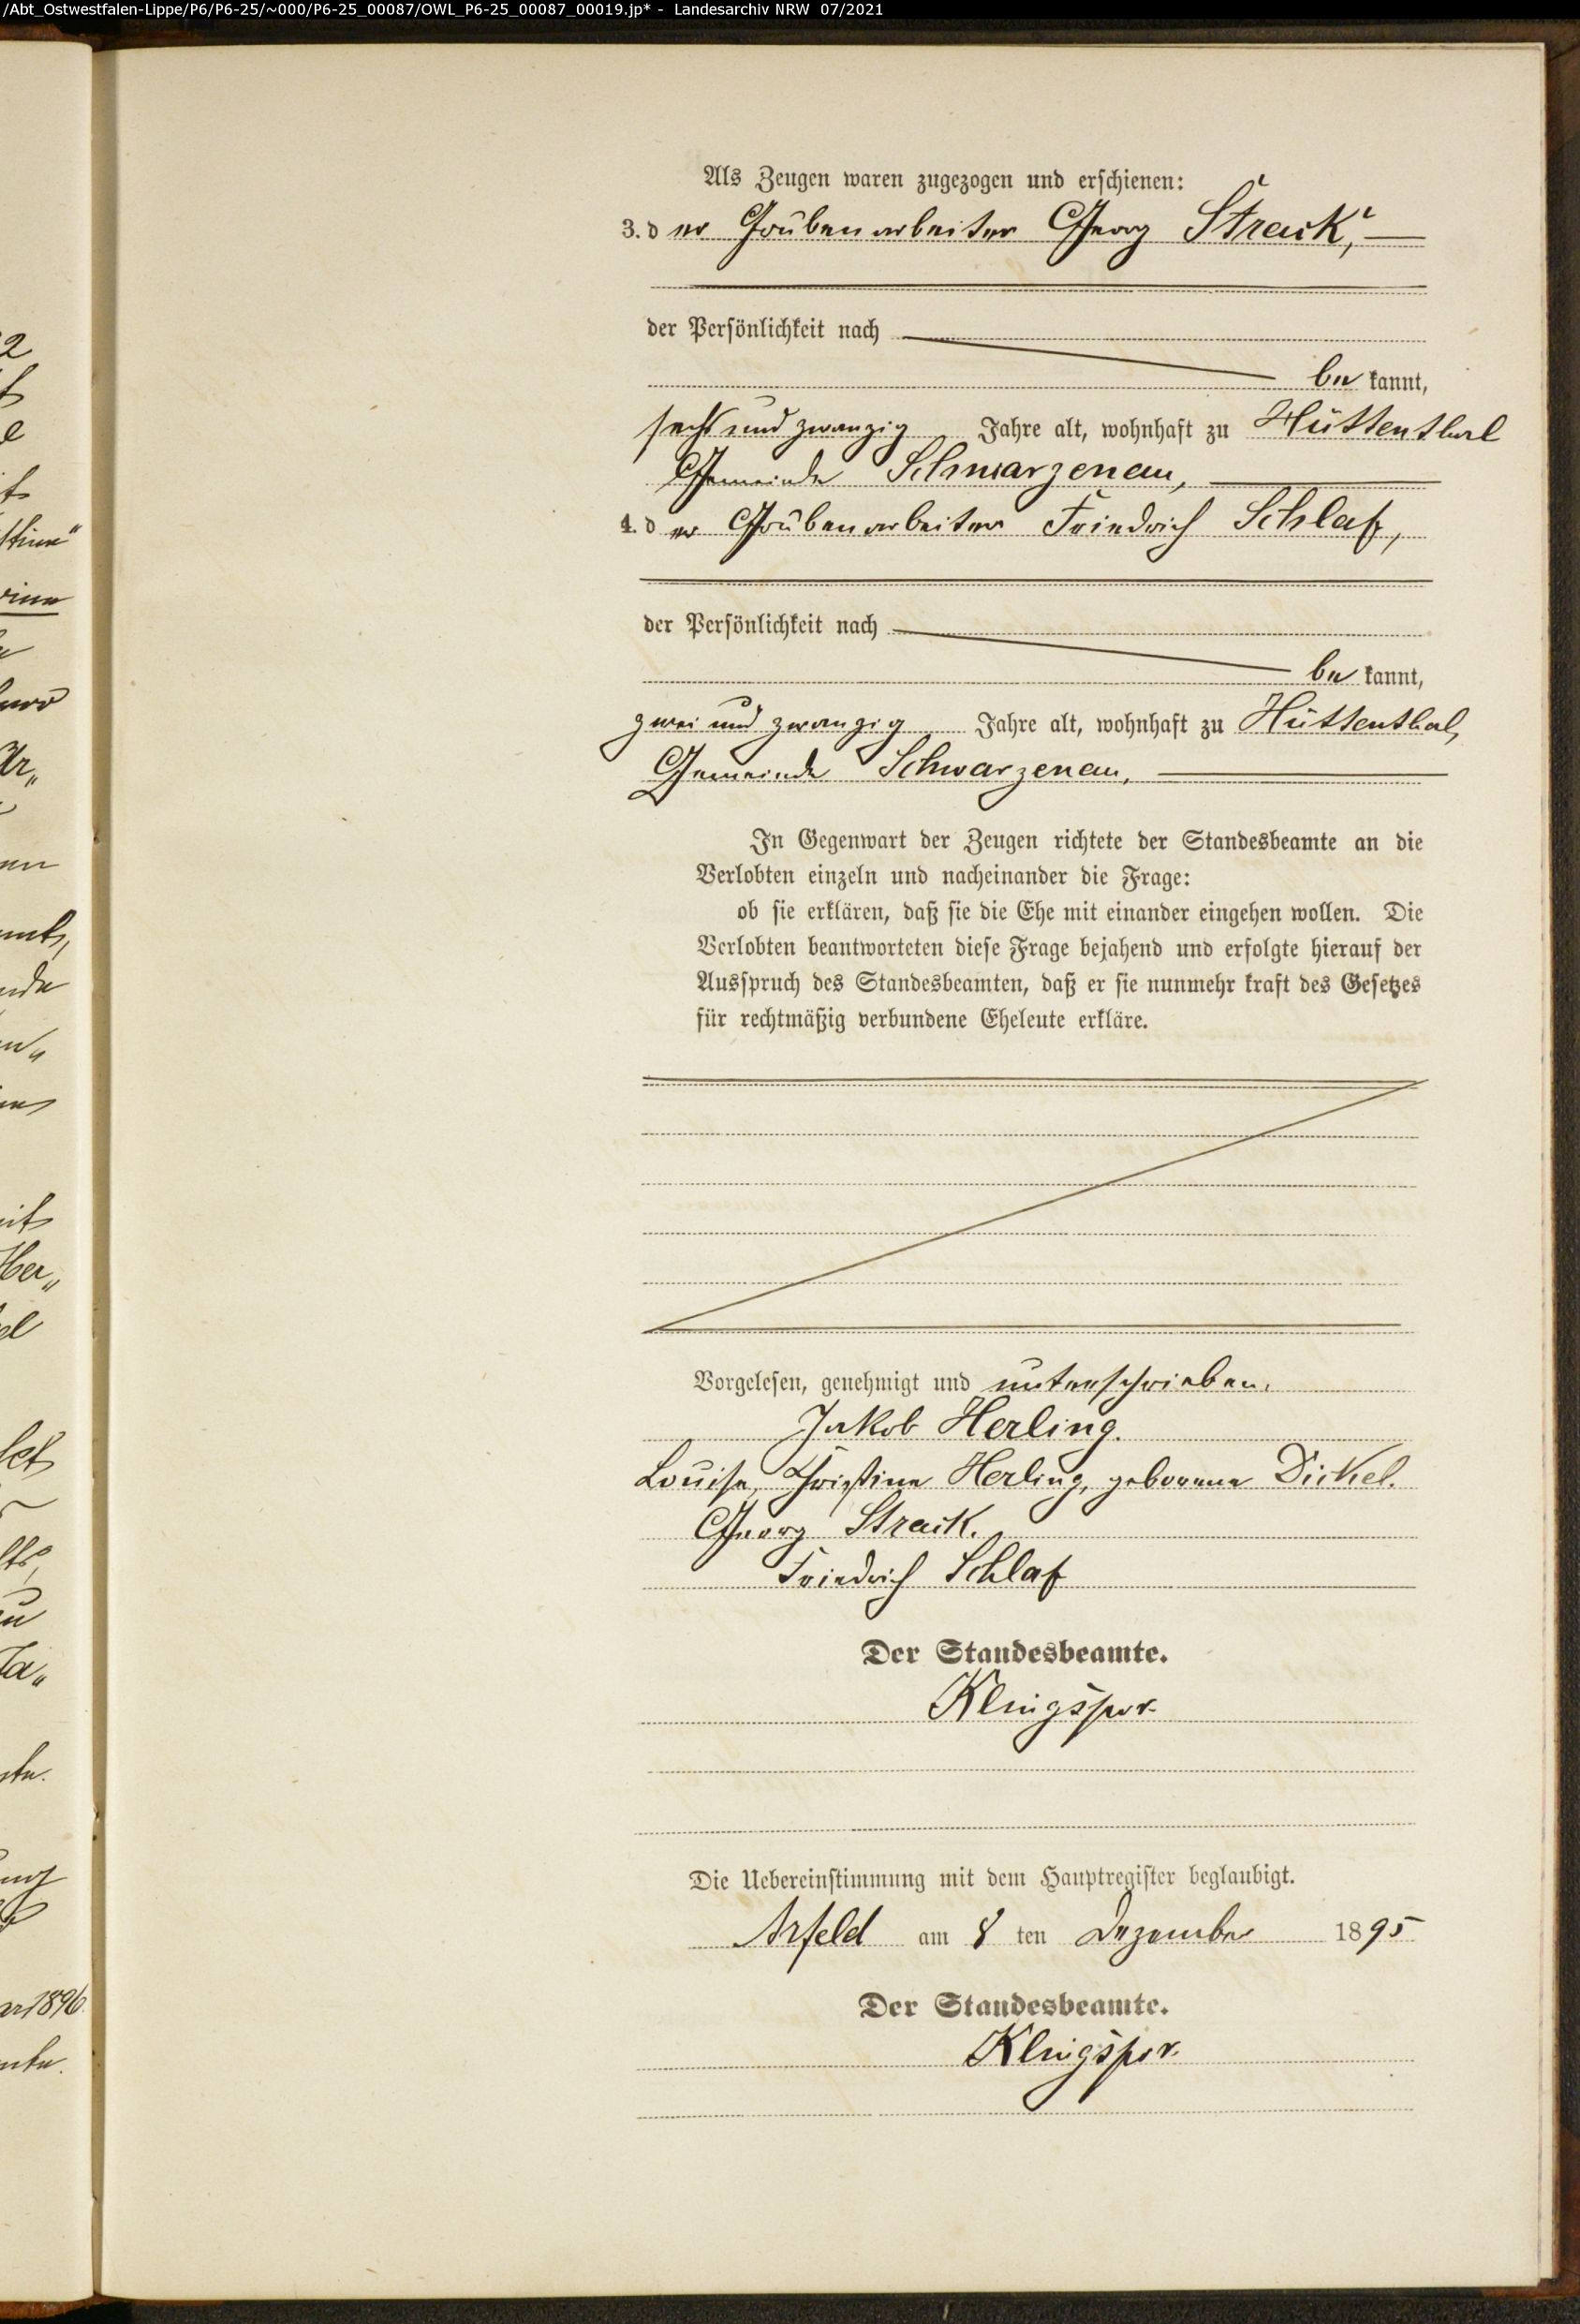 /Abt_Ostwestfalen-Lippe/P6/P6-25/~000/P6-25_00087/OWL_P6-25_00087_00019.jp* - Landesarchiv NRW 07/2021
Als Zeugen waren zugezogen und erschienen:
3. der Grubenarbeiter Georg Strack,
der Persönlichkeit nach
bekannt,
sechs und zwanzig Jahre alt, wohnhaft zu Hüttenthal
Gemeinde Schwarzenau,
4. der Grubenarbeiter Friedrich Schlaf,
der Persönlichkeit nach
bekannt,
zwei und zwanzig Jahre alt, wohnhaft zu Hüttenthal,
Gemeinde Schwarzenau,
In Gegenwart der Zeugen richtete der Standesbeamte an die
Verlobten einzeln und nacheinander die Frage:
ob sie erklären, daß sie die Ehe mit einander eingehen wollen. Die
Verlobten beantworteten diese Frage bejahend und erfolgte hierauf der
Ausspruch des Standesbeamten, daß er sie nunmehr kraft des Gesetzes
für rechtmäßig verbundene Eheleute erkläre.
Vorgelesen, genehmigt und unterschrieben.
Jakob Herling.
Louise, Christine Herling, geborene Dickel.
Georg Strack.
Friedrich Schlaf
Der Standesbeamte.
Klingspor.
Die Uebereinstimmung mit dem Hauptregister beglaubigt.
Arfeld am 8 ten Dezember 1895
Der Standesbeamte.
Klingspor.